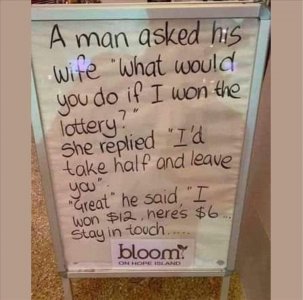 A man asked his
wife "what would
you do if I won the
lottery?"
She replied "I'd
take half and leave
you".
"Great" he said, "I
won $12, heres $6...
Stay in touch.....
bloom
ON HOPE ISLAND